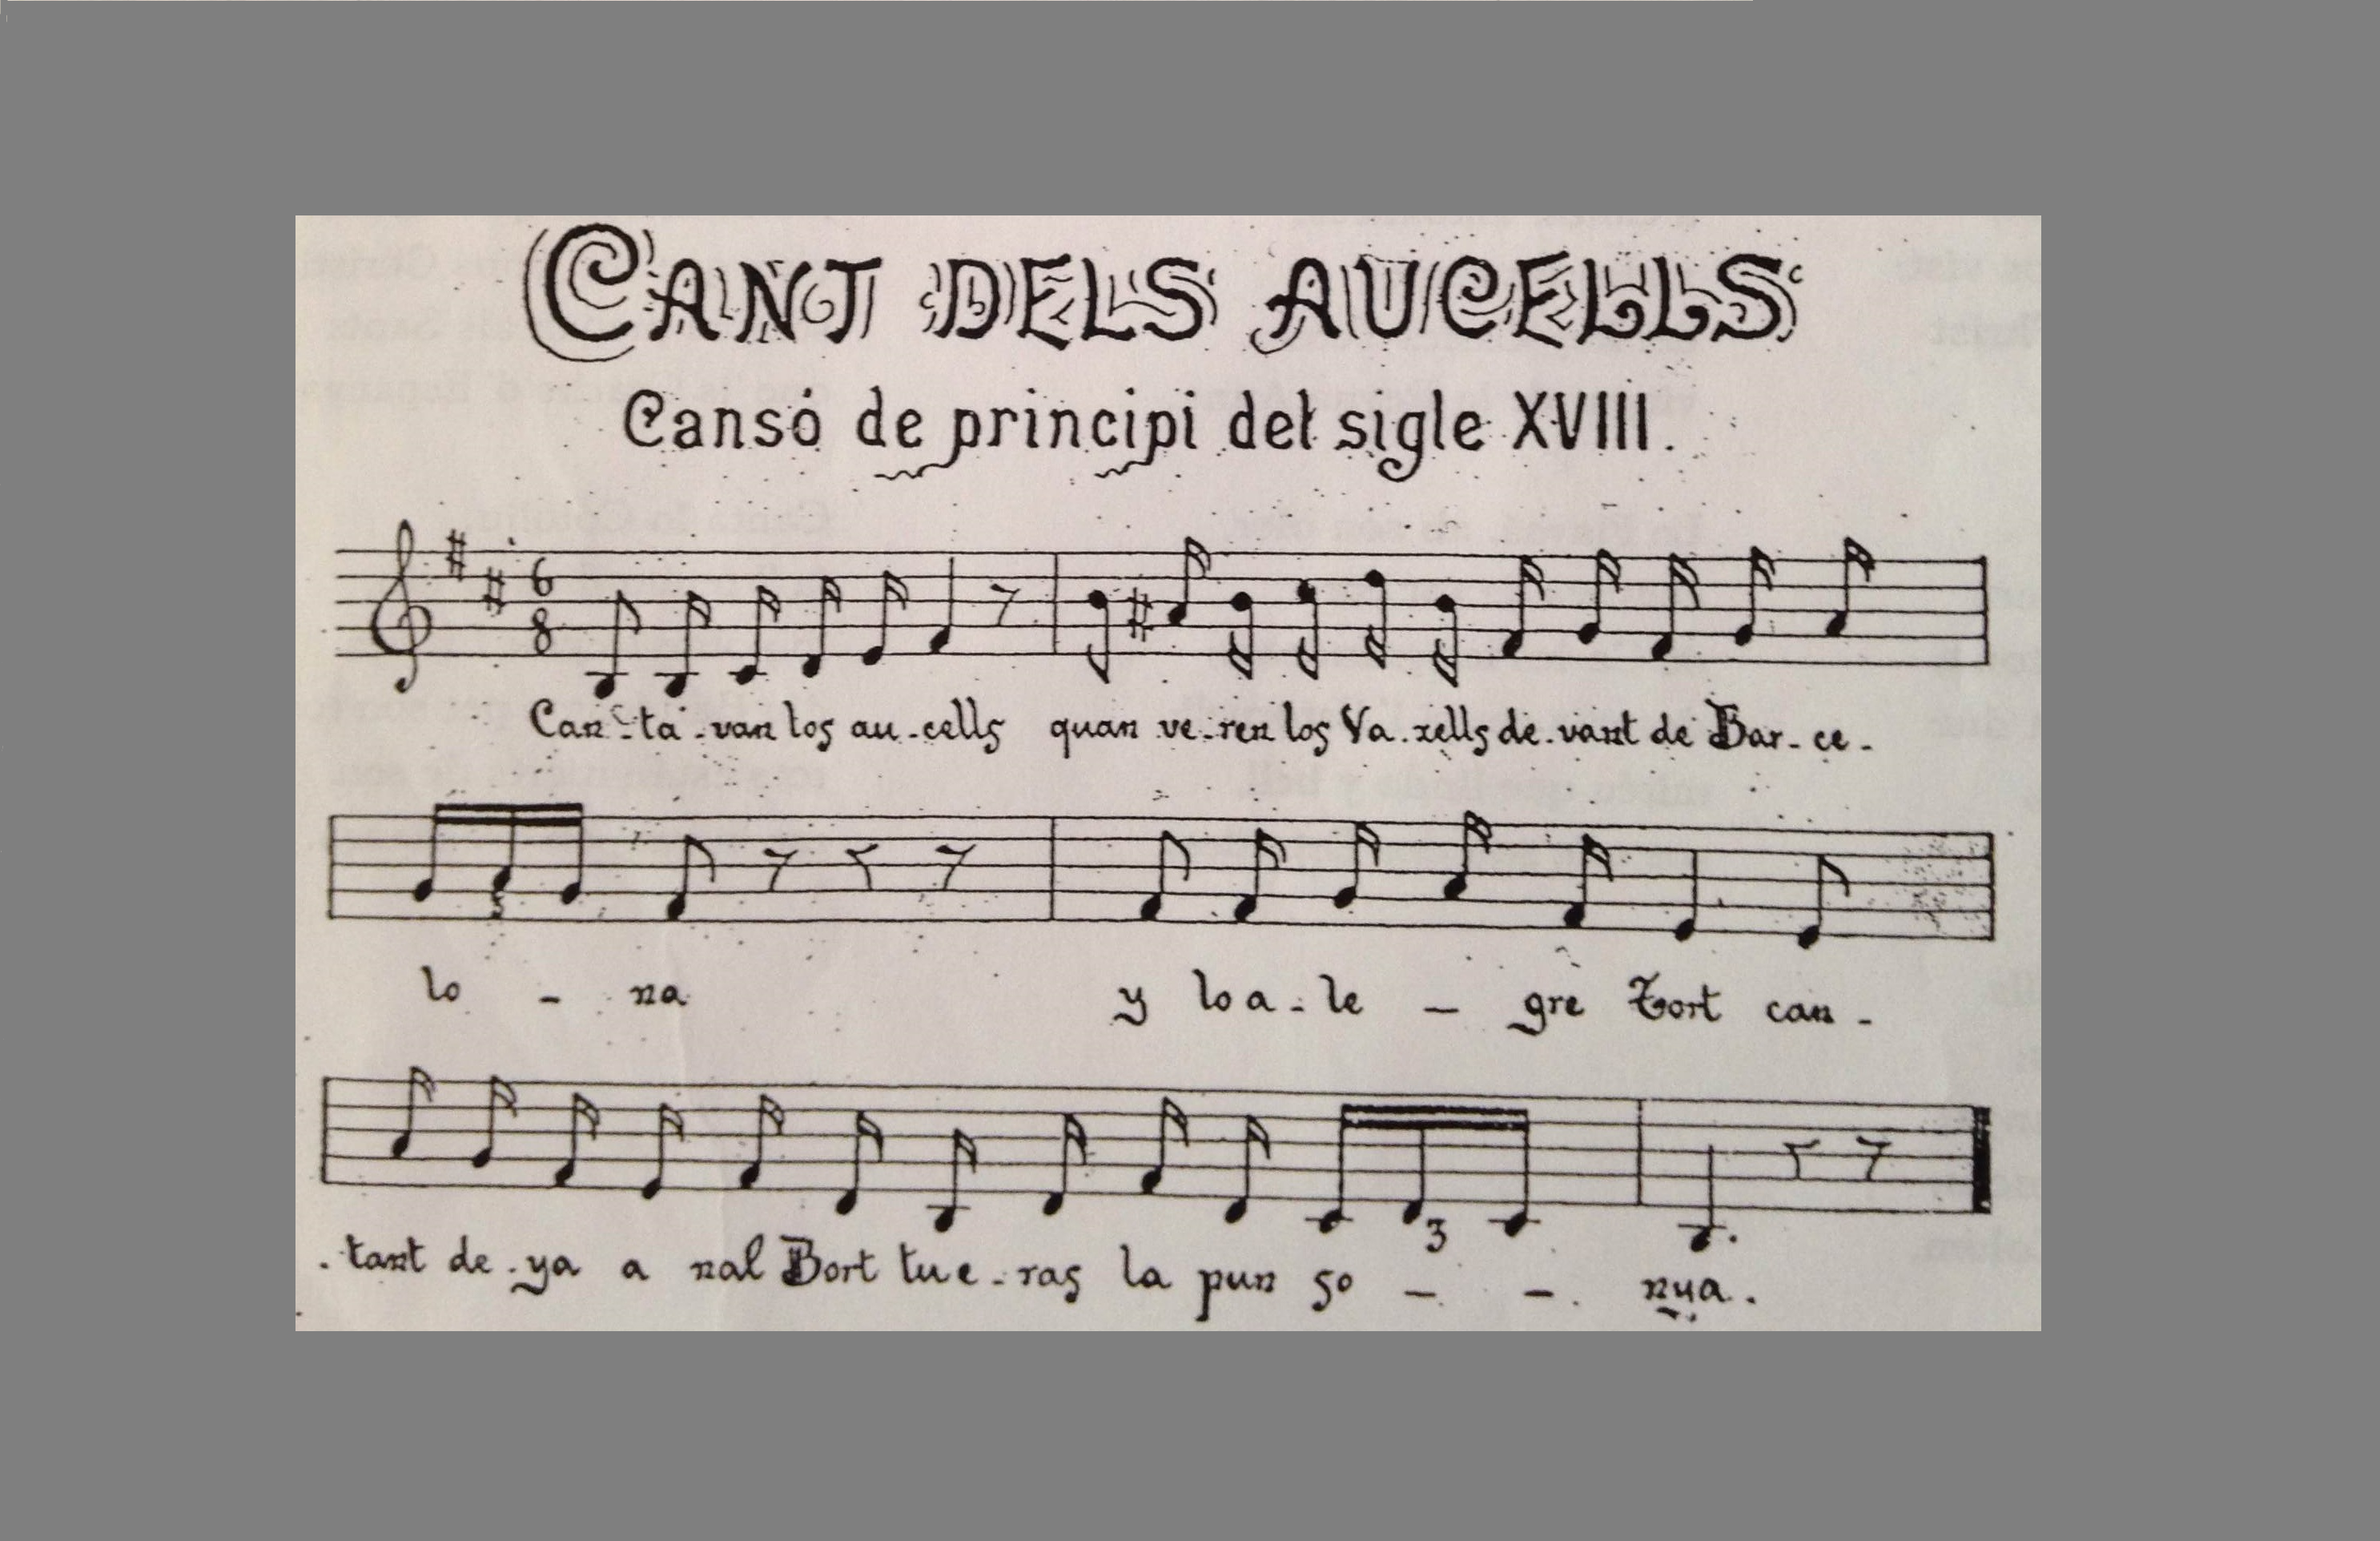 CANT DELS AUCELLS
Cansó de principi del sigle XVIII.
6
8
Can-ta-van los au-cells quan ve-ren los Va-xells de-vant de Bar-ce-
lo - na y lo a-le - gre Tort can-
3
-tant de-ya a nal Bort tu e-ras la pun so - - nya.